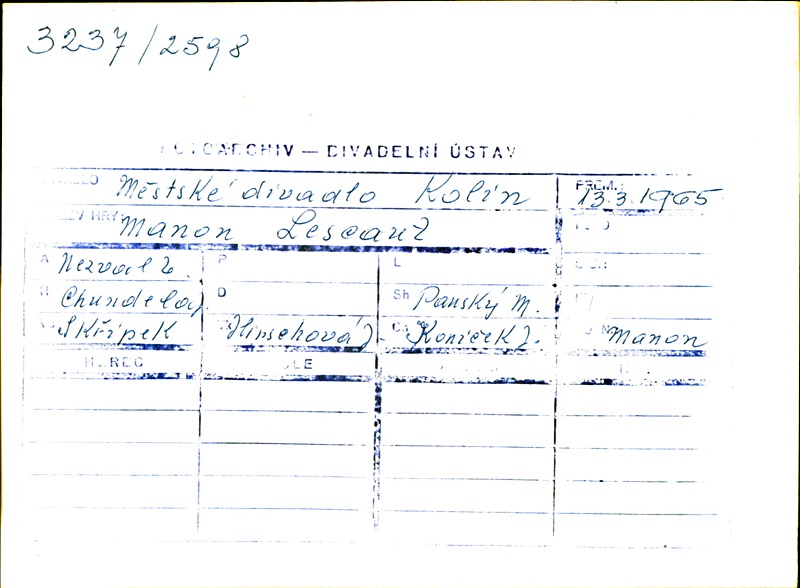 3237/2598
FOTOARCHIV — DIVADELNÍ ÚSTAV
Městské divadlo Kolín PREM. 13.3.1965
Manon Lescaut
A Nezval P L
R Chundela D Sh Panský M.
Skřípek Hirschová J. Koníček J. Manon
HEREC